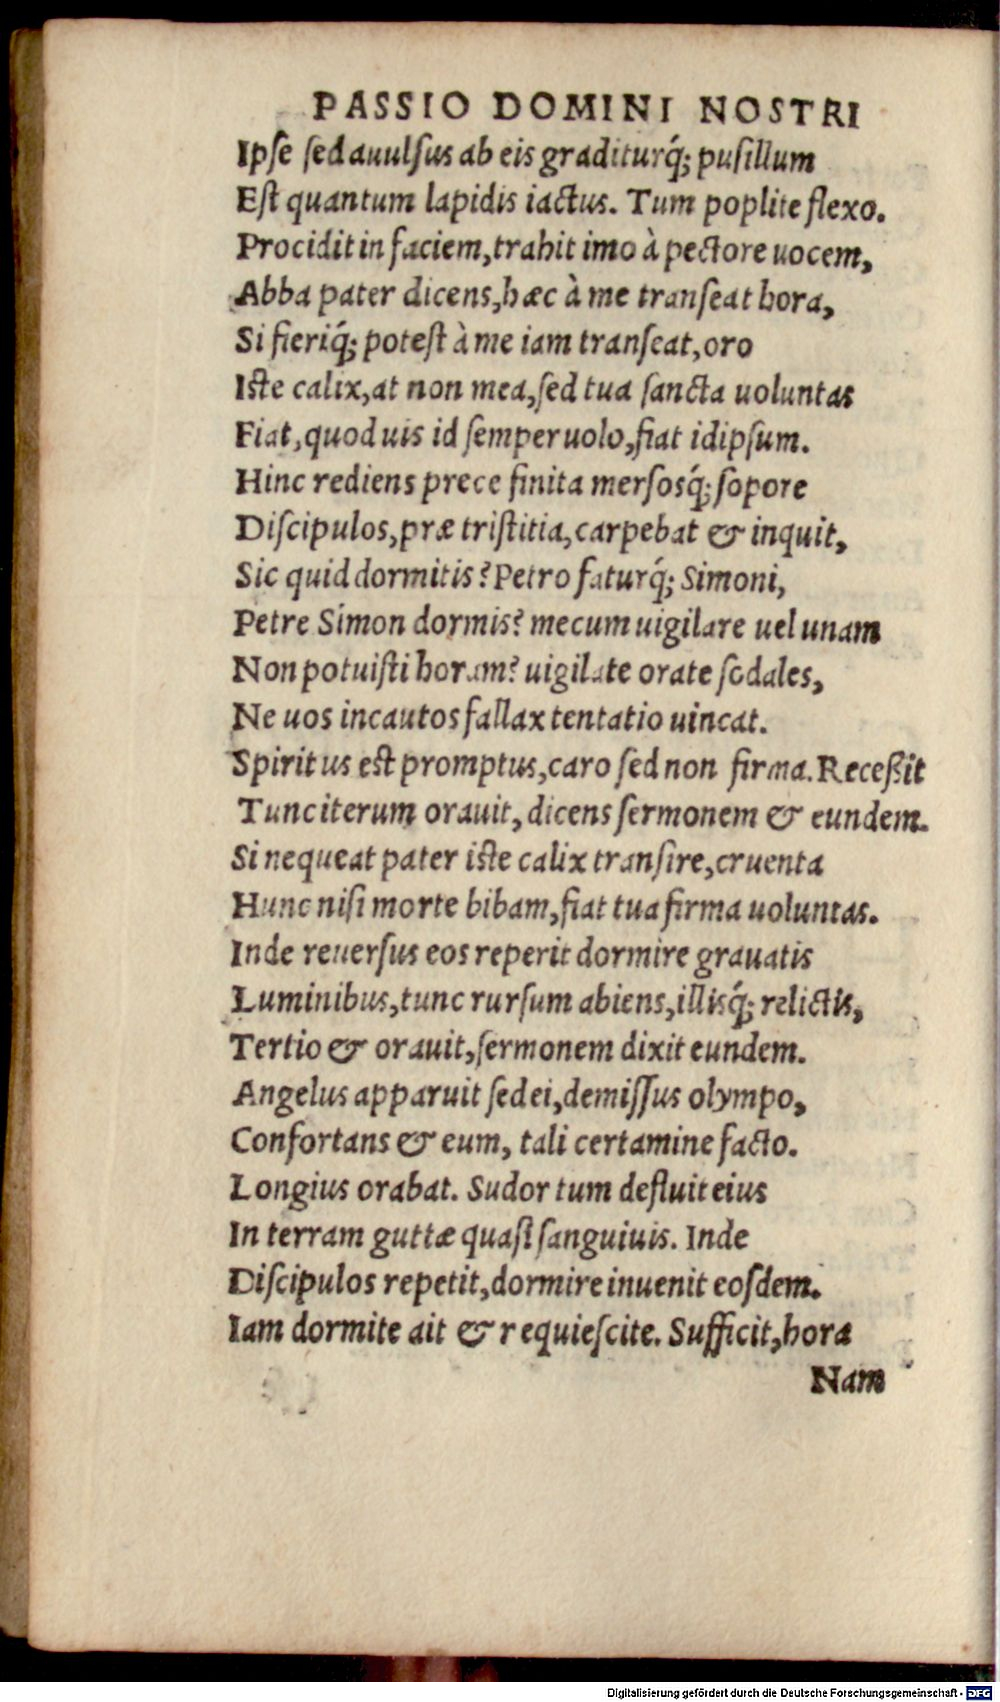 PASSIO DOMINI NOSTRI
Ipſe ſed auulſus ab eis graditurq́; puſillum
Eſt quantum lapidis iactus. Tum poplite flexo.
Procidit in faciem, trahit imo à pectore uocem,
Abba pater dicens, hæc à me tranſeat hora,
Si fieriq́; poteſt à me iam tranſeat, oro
Iſte calix, at non mea, ſed tua ſancta uoluntas
Fiat, quod uis id ſemper uolo, fiat idipſum.
Hinc rediens prece finita merſosq́; ſopore
Diſcipulos, præ triſtitia, carpebat & inquit,
Sic quid dormitis? Petro faturq́; Simoni,
Petre Simon dormis? mecum uigilare uel unam
Non potuiſti horam? uigilate orate ſodales,
Ne uos incautos fallax tentatio uincat.
Spiritus eſt promptus, caro ſed non firma. Receßit
Tunc iterum orauit, dicens ſermonem & eundem.
Si nequeat pater iſte calix tranſire, cruenta
Hunc niſi morte bibam, fiat tua firma uoluntas.
Inde reuerſus eos reperit dormire grauatis
Luminibus, tunc rurſum abiens, illisq́; relictis,
Tertio & orauit, ſermonem dixit eundem.
Angelus apparuit ſed ei, demiſſus olympo,
Confortans & eum, tali certamine facto.
Longius orabat. Sudor tum defluit eius
In terram guttæ quaſi ſanguiuis. Inde
Diſcipulos repetit, dormire inuenit eoſdem.
Iam dormite ait & requieſcite. Sufficit, hora
Nam
Digitalisierung gefördert durch die Deutsche Forschungsgemeinschaft - DFG